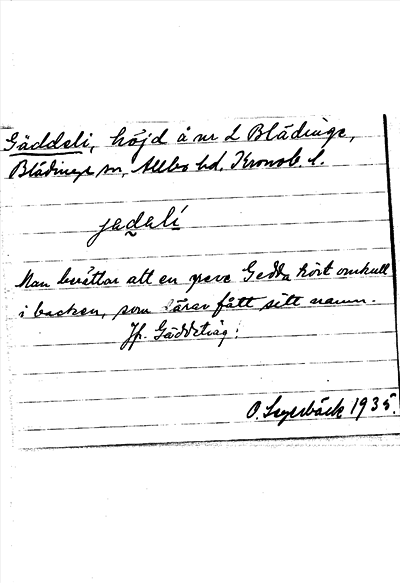 Gäddeli, höjd å nr 2 Blädinge,
Blädinge sn, Allbo hd, Kronob. l.
jadalí
Man berättar att en greve Gedda kört omkull
i backen, som därav fått sitt namn.
Jfr. Gäddetrag.
O. Segerbäck 1935.